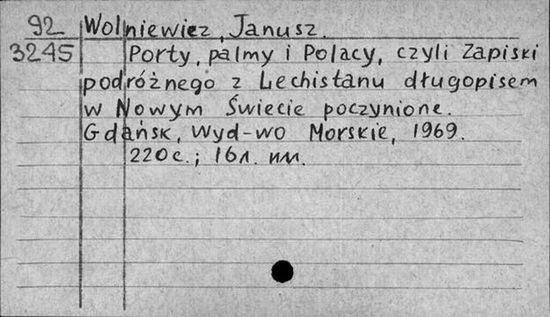 92 Wolniewicz, Janusz.
3245 Porty, palmy i Polacy, czyli Zapiski
podróżnego z Lechistanu długopisem
w Nowym Świecie poczynione.
Gdańsk, Wyd-wo Morskie, 1969.
220с.; 16л. илл.